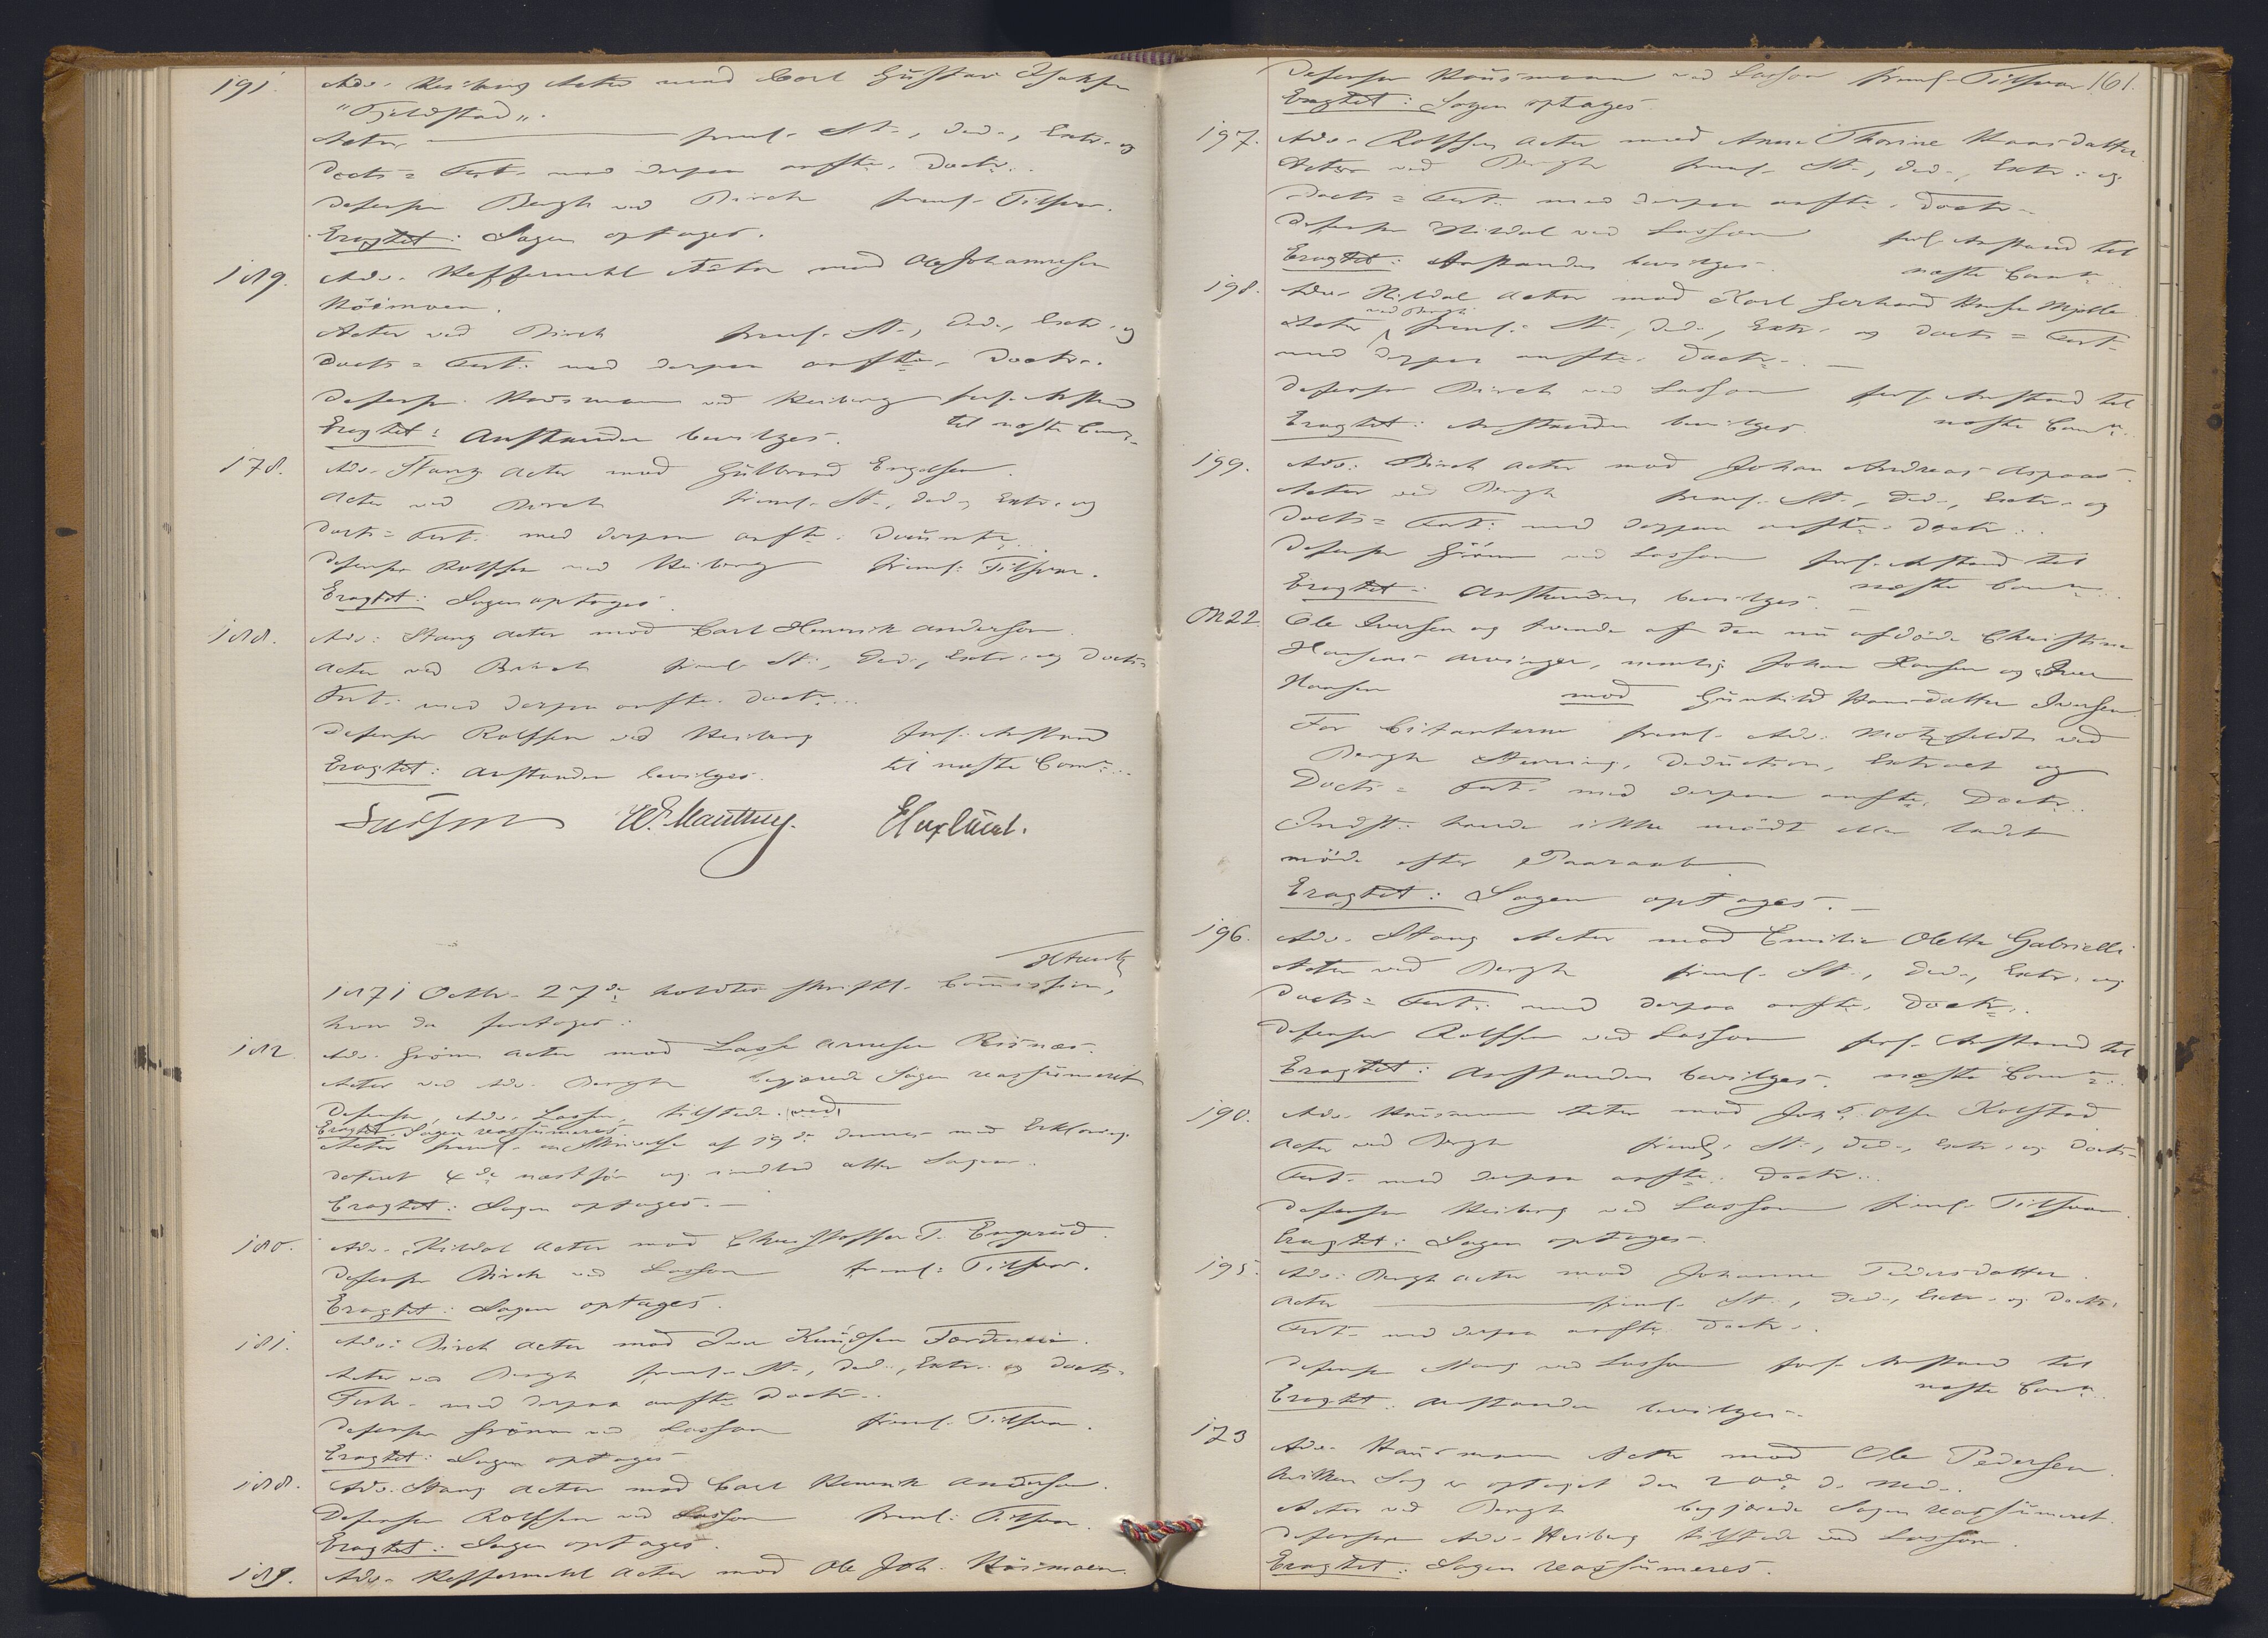 191. Adv. Heiberg Actor mod Carl Gustav Isaksen
"Fjeldstad".
Actor freml. St., Ded., Extr. og
Docts = Fort. med derpaa anførte Doctr.
Defensor Bergh ved Birch freml. Tilsvar.
Eragtet: Sagen optages.
189. Adv. Heffermehl Actor mod Ole Johannesen
Höimoen.
Actor ved Birch freml. St., Ded., Extr. og
Docts = Fort. med derpaa anførte Doctr.
Defensor Hausmann ved Heiberg forl. Anstand
til næste Comn.
Eragtet: Anstanden bevilges.
178. Adv. Stang Actor mod Gulbrand Engelsen.
Actor ved Birch freml. St., Ded., Extr. og
Docts = Fort. med derpaa anførte
Defensor Rolfsen ved Heiberg freml. Tilsvar.
Eragtet: Sagen optages.
188. Adv. Stang Actor mod Carl Henrik Andersen.
Actor ved Birch freml. St., Ded., Extr. og Docts =
Fort. med derpaa anførte Doctr.
Defensor Rolfsen ved Heiberg forl. Anstand
til næste Comn.
Eragtet: Anstanden bevilges.
Lasson W. Manthey.
1871 Octbr. 27de holdtes skriftl. Commission,
hvor da foretoges:
182. Adv. Grönn Actor mod Lasse Arnesen Risnæs.
Actor ved Adv. Bergh begjærede Sagen reassumeret
Defensor, Adv. Lasson, tilstede.
Eragtet: Sagen reassumeres.
Actor freml. en Skrivelse af 19de dennes med Erklæring
dateret 4de næstfør og indlod atter Sagen.
Eragtet: Sagen optages.
180. Adv. Hildal Actor mod Christoffer T. Engerud.
Defensor Birch ved Lasson freml. Tilsvar.
Eragtet: Sagen optages.
181. Adv. Birch Actor mod Iver Knudsen
Actor ved Bergh freml. St., Ded., Extr. og Docts =
Fort. med derpaa anførte Doctr.
Defensor Grönn ved Lasson freml. Tilsvar.
Eragtet: Sagen optages
188. Adv. Stang Actor mod Carl Henrik Andersen.
Defensor Rolfsen ved Lasson freml. Tilsvar.
Eragtet: Sagen optages.
189. Adv. Heffermehl Actor mod Ole Joh. Höimoen.
161.
Defensor Hausmann ved Lasson freml. Tilsvar
Eragtet: Sagen optages.
197. Adv. Rolfsen Actor mod Anne Thorine Hansdatter.
Actor ved Bergh freml. St., Ded., Extr. og
Docts = Fort. med derpaa anførte Doctr.
Defensor Hildal ved Lasson forl. Anstand til
næste Comn.
Eragtet: Anstanden bevilges.
198. Adv. Hildal Actor mod Karl Gerhard Hansen Mjölle.
Actor ved Bergh freml. St., Ded., Extr. og Docts = Fort.
med derpaa anførte Doctr.
Defensor Birch ved Lasson forl. Anstand til
næste Comn.
Eragtet: Anstanden bevilges.
199. Adv. Birch Actor mod Johan Andreas Aspaas.
Actor ved Bergh freml. St., Ded., Extr. og
Docts = Fort. med derpaa anførte Doctr.
Defensor Grönn ved Lasson forl. Anstand til
næste Comn.
Eragtet: Anstanden bevilges.
22. Ole Iversen og tvende af den nu afdöde Christine
Hansens Arvinger, nemlig Johan Hansen og Iver
Hansen mod Gunhild Hansdatter Iversen.
For Citanterne freml. Adv. Motzfeldt ved
Bergh Stevning, Deduction, Extract og
Docts = Fort. med derpaa anførte Doctr.
Indst. havde ikke mödt eller ladet
möde efter Paaraab.
Eragtet: Sagen optages.
196. Adv. Stang Actor mod Emilie Olette Gabrielli
Actor ved Bergh freml. St., Ded., Extr. og
Docts = Fort. med derpaa anførte Doctr.
Defensor Rolfsen ved Lasson forl. Anstand til
næste Comn.
Eragtet: Anstanden bevilges.
190. Adv. Hausmann Actor mod Johs. Olsen Kolstad
Actor ved Bergh freml. St., Ded., Extr. og Docts =
Fort. med derpaa anførte Doctr.
Defensor Heiberg ved Lasson freml. Tilsvar.
Eragtet: Sagen optages.
195. Adv. Bergh Actor mod Johanne Pedersdatter.
Actor freml. St., Ded., Extr. og Docts =
Fort. med derpaa anførte Doctr.
Defensor Stang ved Lasson forl. Anstand til
næste Comn.
Eragtet: Anstanden bevilges.
173 Adv. Hausmann Actor mod Ole Pedersen.
hvilken Sag er optaget den 20de d. Md.
Actor ved Bergh begjærede Sagen reassumeret.
Defensor Adv. Heiberg tilstede ved Lasson.
Eragtet: Sagen reassumeres.